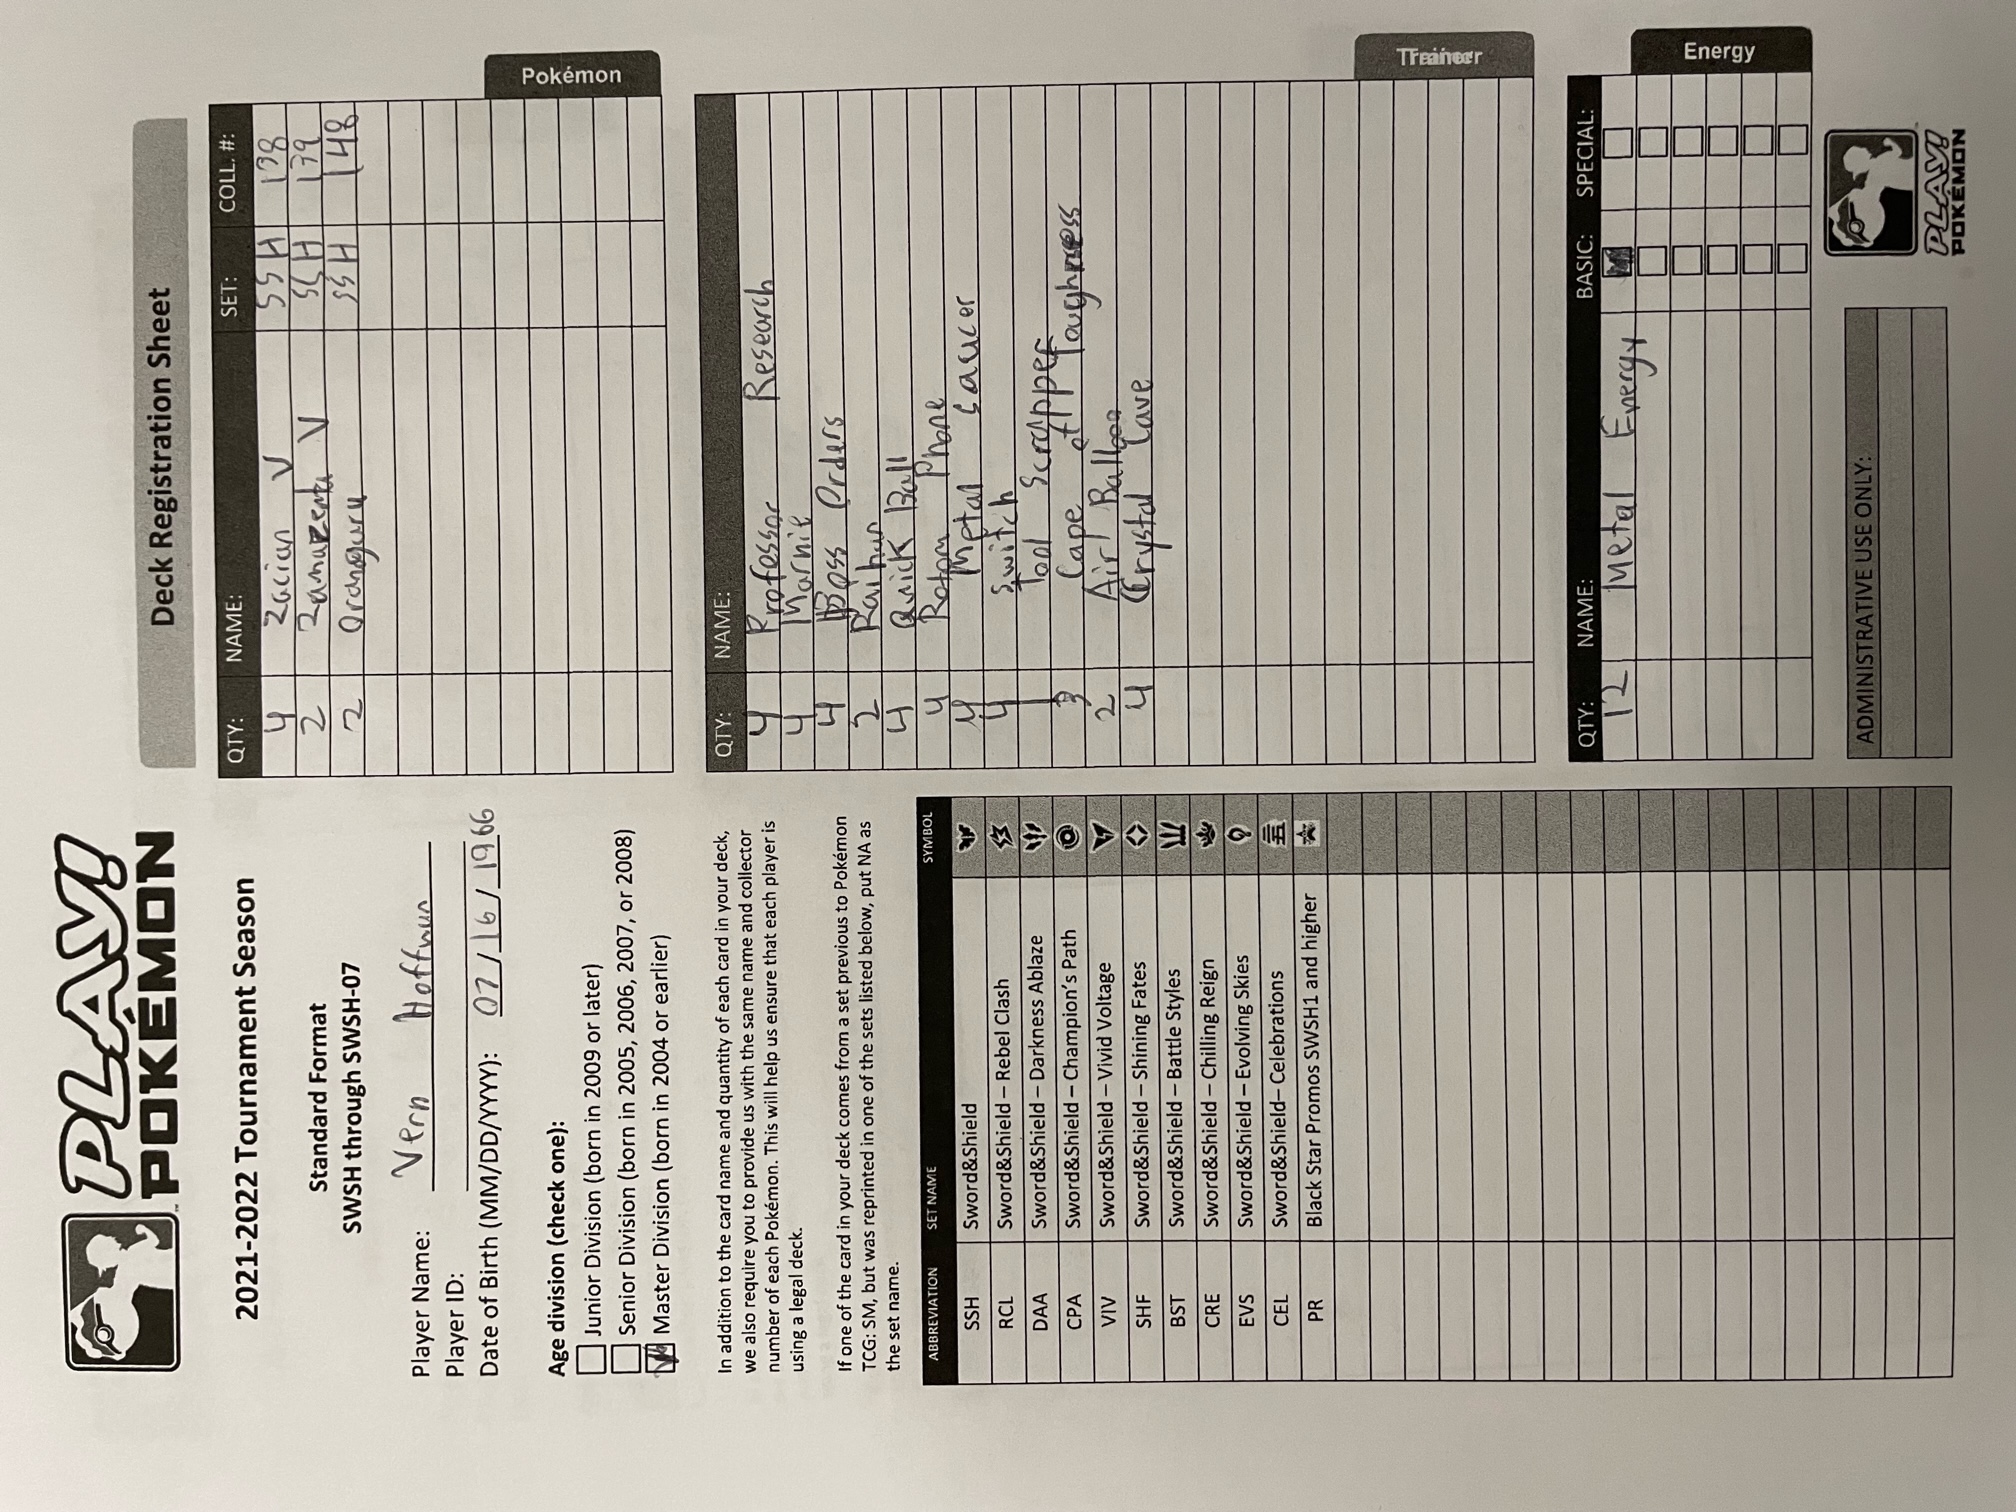 PLAY!
POKÉMON
2021-2022 Tournament Season
Standard Format
SWSH through SWSH-07
Player Name: Vern Hoffman
Player ID:
Date of Birth (MM/DD/YYYY): 07/16/1966
Age division (check one):
Junior Division (born in 2009 or later)
Senior Division (born in 2005, 2006, 2007, or 2008)
Master Division (born in 2004 or earlier)
In addition to the card name and quantity of each card in your deck,
we also require you to provide us with the same name and collector
number of each Pokémon. This will help us ensure that each player is
using a legal deck.
If one of the card in your deck comes from a set previous to Pokémon
TCG: SM, but was reprinted in one of the sets listed below, put NA as
the set name.
ABBREVIATION SET NAME SYMBOL
SSH Sword&Shield
RCL Sword&Shield – Rebel Clash
DAA Sword&Shield – Darkness Ablaze
CPA Sword&Shield – Champion's Path
VIV Sword&Shield – Vivid Voltage
SHF Sword&Shield – Shining Fates
BST Sword&Shield – Battle Styles
CRE Sword&Shield – Chilling Reign
EVS Sword&Shield – Evolving Skies
CEL Sword&Shield– Celebrations
PR Black Star Promos SWSH1 and higher
Deck Registration Sheet
QTY: NAME: SET: COLL. #:
4 Zacian V SSH 138
2 Zamazenta V SSH 139
2 Oranguru SSH 148
Pokémon
QTY: NAME:
4 Professor Research
4 Marnie
4 Boss Orders
2 Raihan
4 Quick Ball
4 Rotom Phone
4 Metal Saucer
4 Switch
1 Tool Scrapper
3 Cape of Toughness
2 Air Balloo
4 Crystal Cave
Trainer
QTY: NAME: BASIC: SPECIAL:
12 Metal Energy
Energy
ADMINISTRATIVE USE ONLY:
PLAY!
POKÉMON